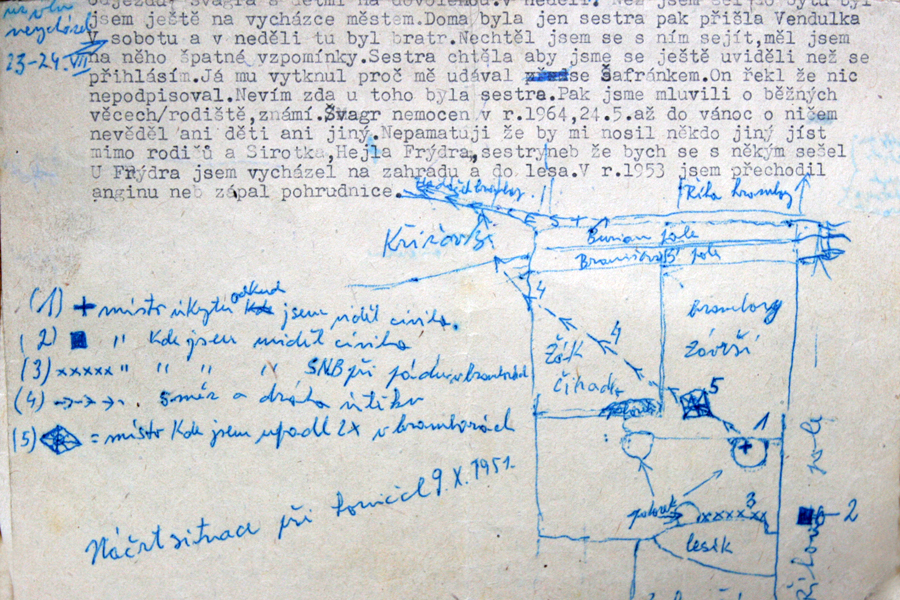 jsem ještě na vycházce městem.Doma byla jen sestra pak přišla Vendulka
V sobotu a v neděli tu byl bratr.Nechtěl jsem se s ním sejít,měl jsem
na něho špatné vzpomínky.Sestra chtěla aby jsme se ještě uviděli než se
přihlásím.Já mu vytknul proč mě udával se Šafránkem.On řekl že nic
nepodpisoval.Nevím zda u toho byla sestra.Pak jsme mluvili o běžných
věcech/rodiště,známí.Švagr nemocen v r.1964,24.5.až do vánoc o ničem
nevěděl ani děti ani jiný.Nepamatuji že by mi nosil někdo jiný jíst
mimo rodičů a Sirotka,Hejla Frýdra,sestryneb že bych se s někým sešel
U Frýdra jsem vycházel na zahradu a do lesa.V r.1953 jsem přechodil
anginu neb zápal pohrudnice.
23-24.VII
Říha brambory
Burian pole
pole
brambory
Závrší
Žák
Číhadt
4
4
5
1
3
2
lesík
pole
(1) + místo úkrytu odkud jsem viděl civila.
(2) ■ " kde jsem viděl civila
(3) xxxxx " " " " SNB při pádu v bramborách
(4) →→→. směr a dráha útěku
(5) = místo kde jsem upadl 2x v bramborách
Náčrt situace při honičce 9.X.1951.